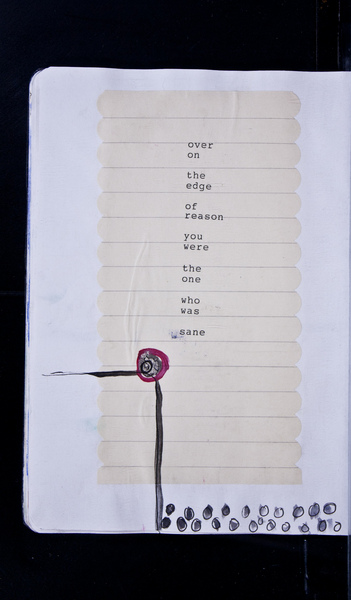 over
on
the
edge
of
reason
you
were
the
one
who
was
sane